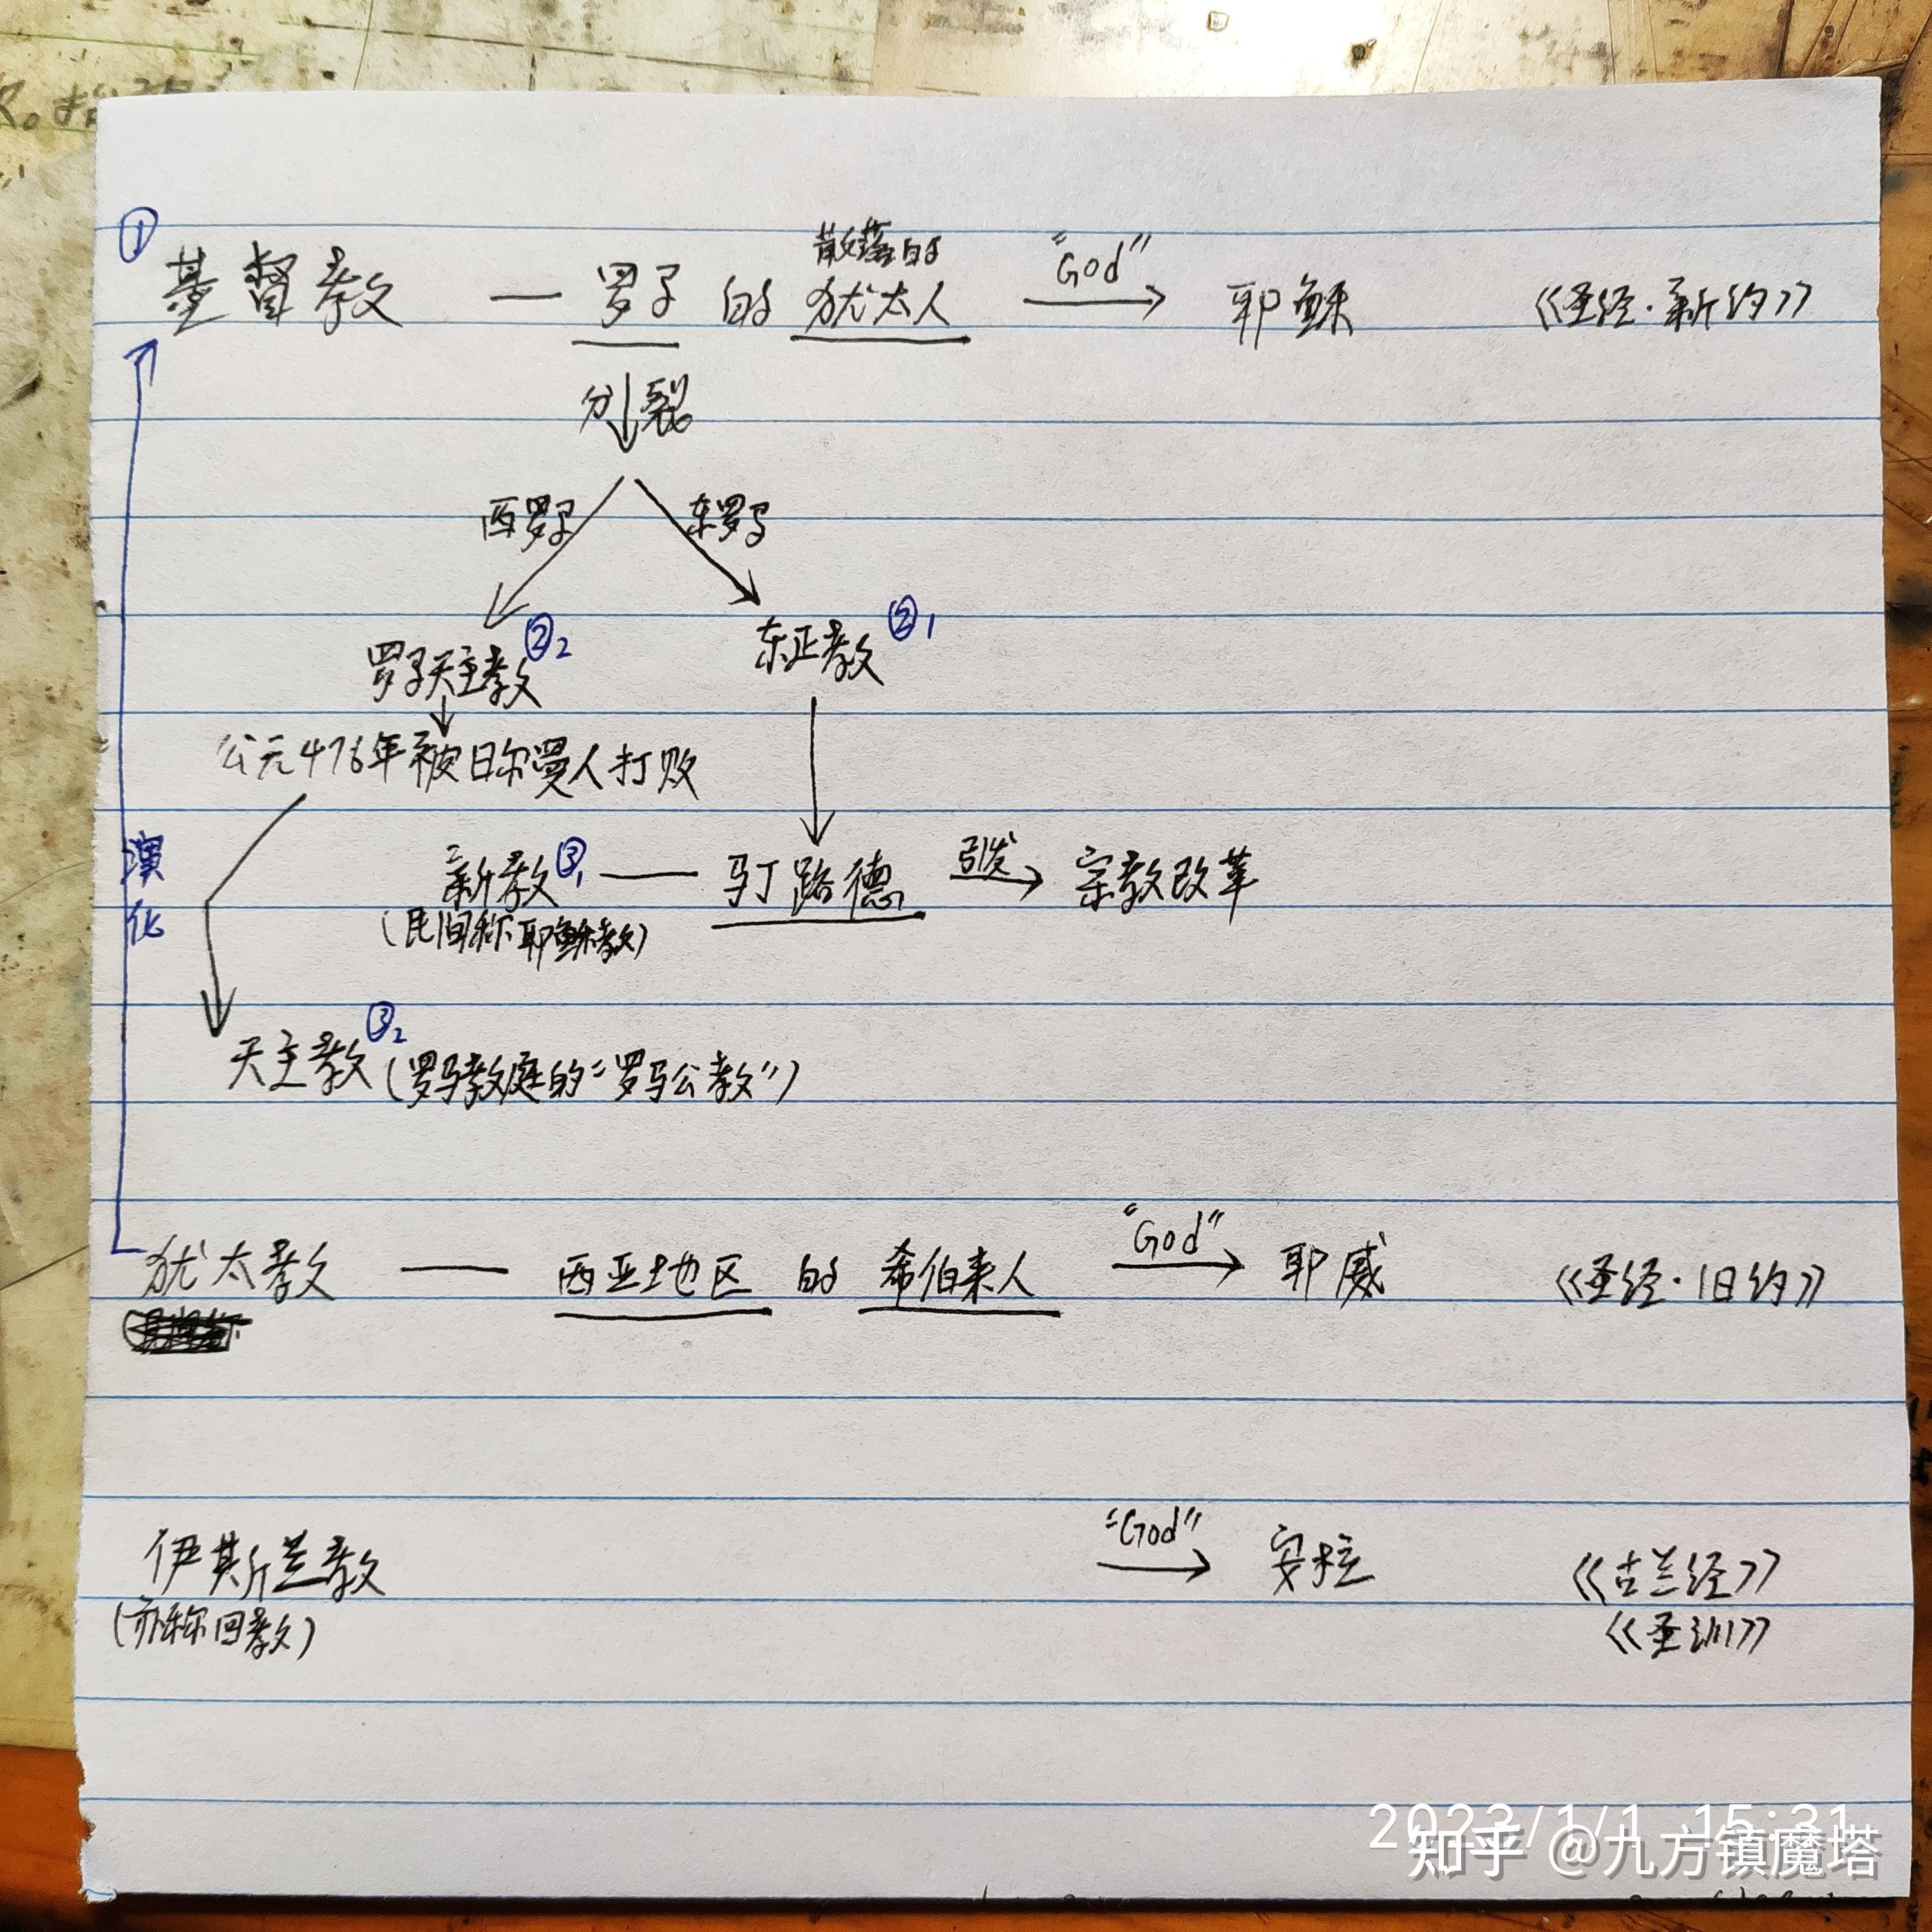 ①
散落的
基督教 — 罗马的犹太人 "God" 耶稣 《圣经·新约》
分裂
西罗马 东罗马
罗马天主教②2 东正教②1
公元476年被日尔曼人打败
演化
新教③1 — 马丁路德 引发 宗教改革
(民间称耶稣教)
天主教③2(罗马教庭的"罗马公教")
犹太教 — 西亚地区的希伯来人 "God" 耶威 《圣经·旧约》
伊斯兰教 "God" 安拉 《古兰经》
(亦称回教) 《圣训》
2023/1/1 15:31
知乎 @九方镇魔塔